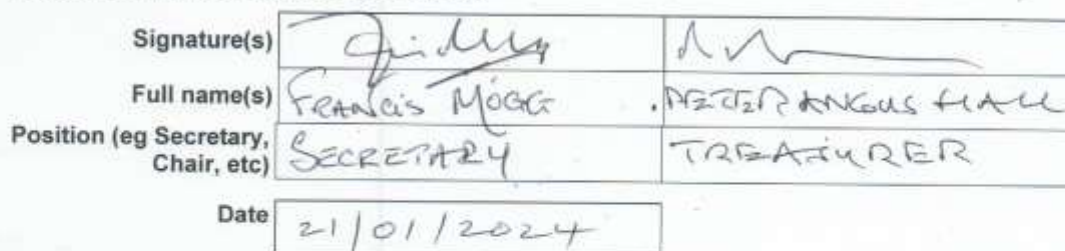 Signature(s)
Full name(s) FRANCIS MOGG PETER ANGUS HALL
Position (eg Secretary, SECRETARY TREASURER
Chair, etc)
Date 21/01/2024